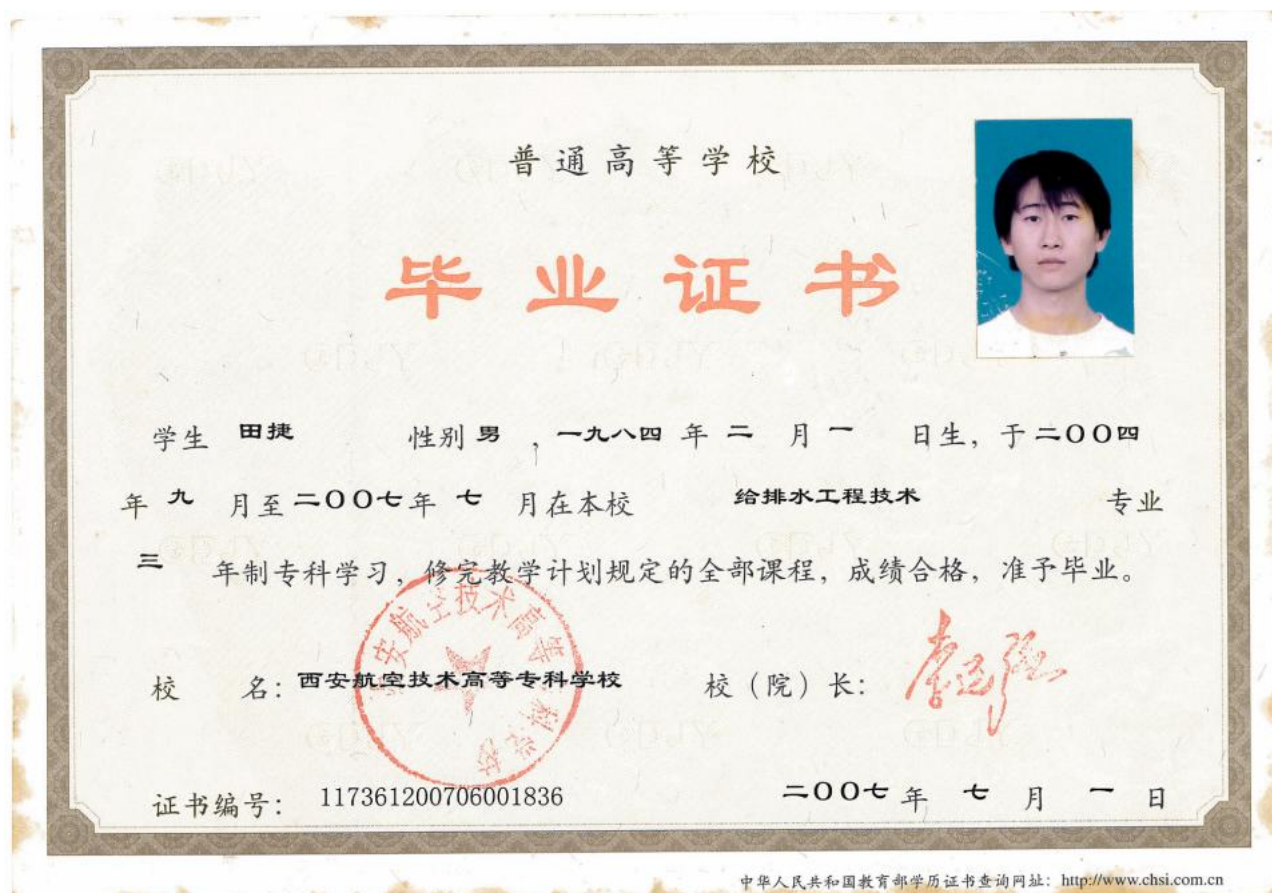 普通高等学校
毕业证书
学生 田捷 性别 男 ，一九八四 年 二 月 一 日生，于 二〇〇四
年 九 月至 二〇〇七 年 七 月在本校 给排水工程技术 专业
三 年制专科学习，修完教学计划规定的全部课程，成绩合格，准予毕业。
校 名：西安航空技术高等专科学校 校（院）长：
西安航空技术高等专科学校
证书编号：117361200706001836 二〇〇七 年 七 月 一 日
中华人民共和国教育部学历证书查询网址：http://www.chsi.com.cn